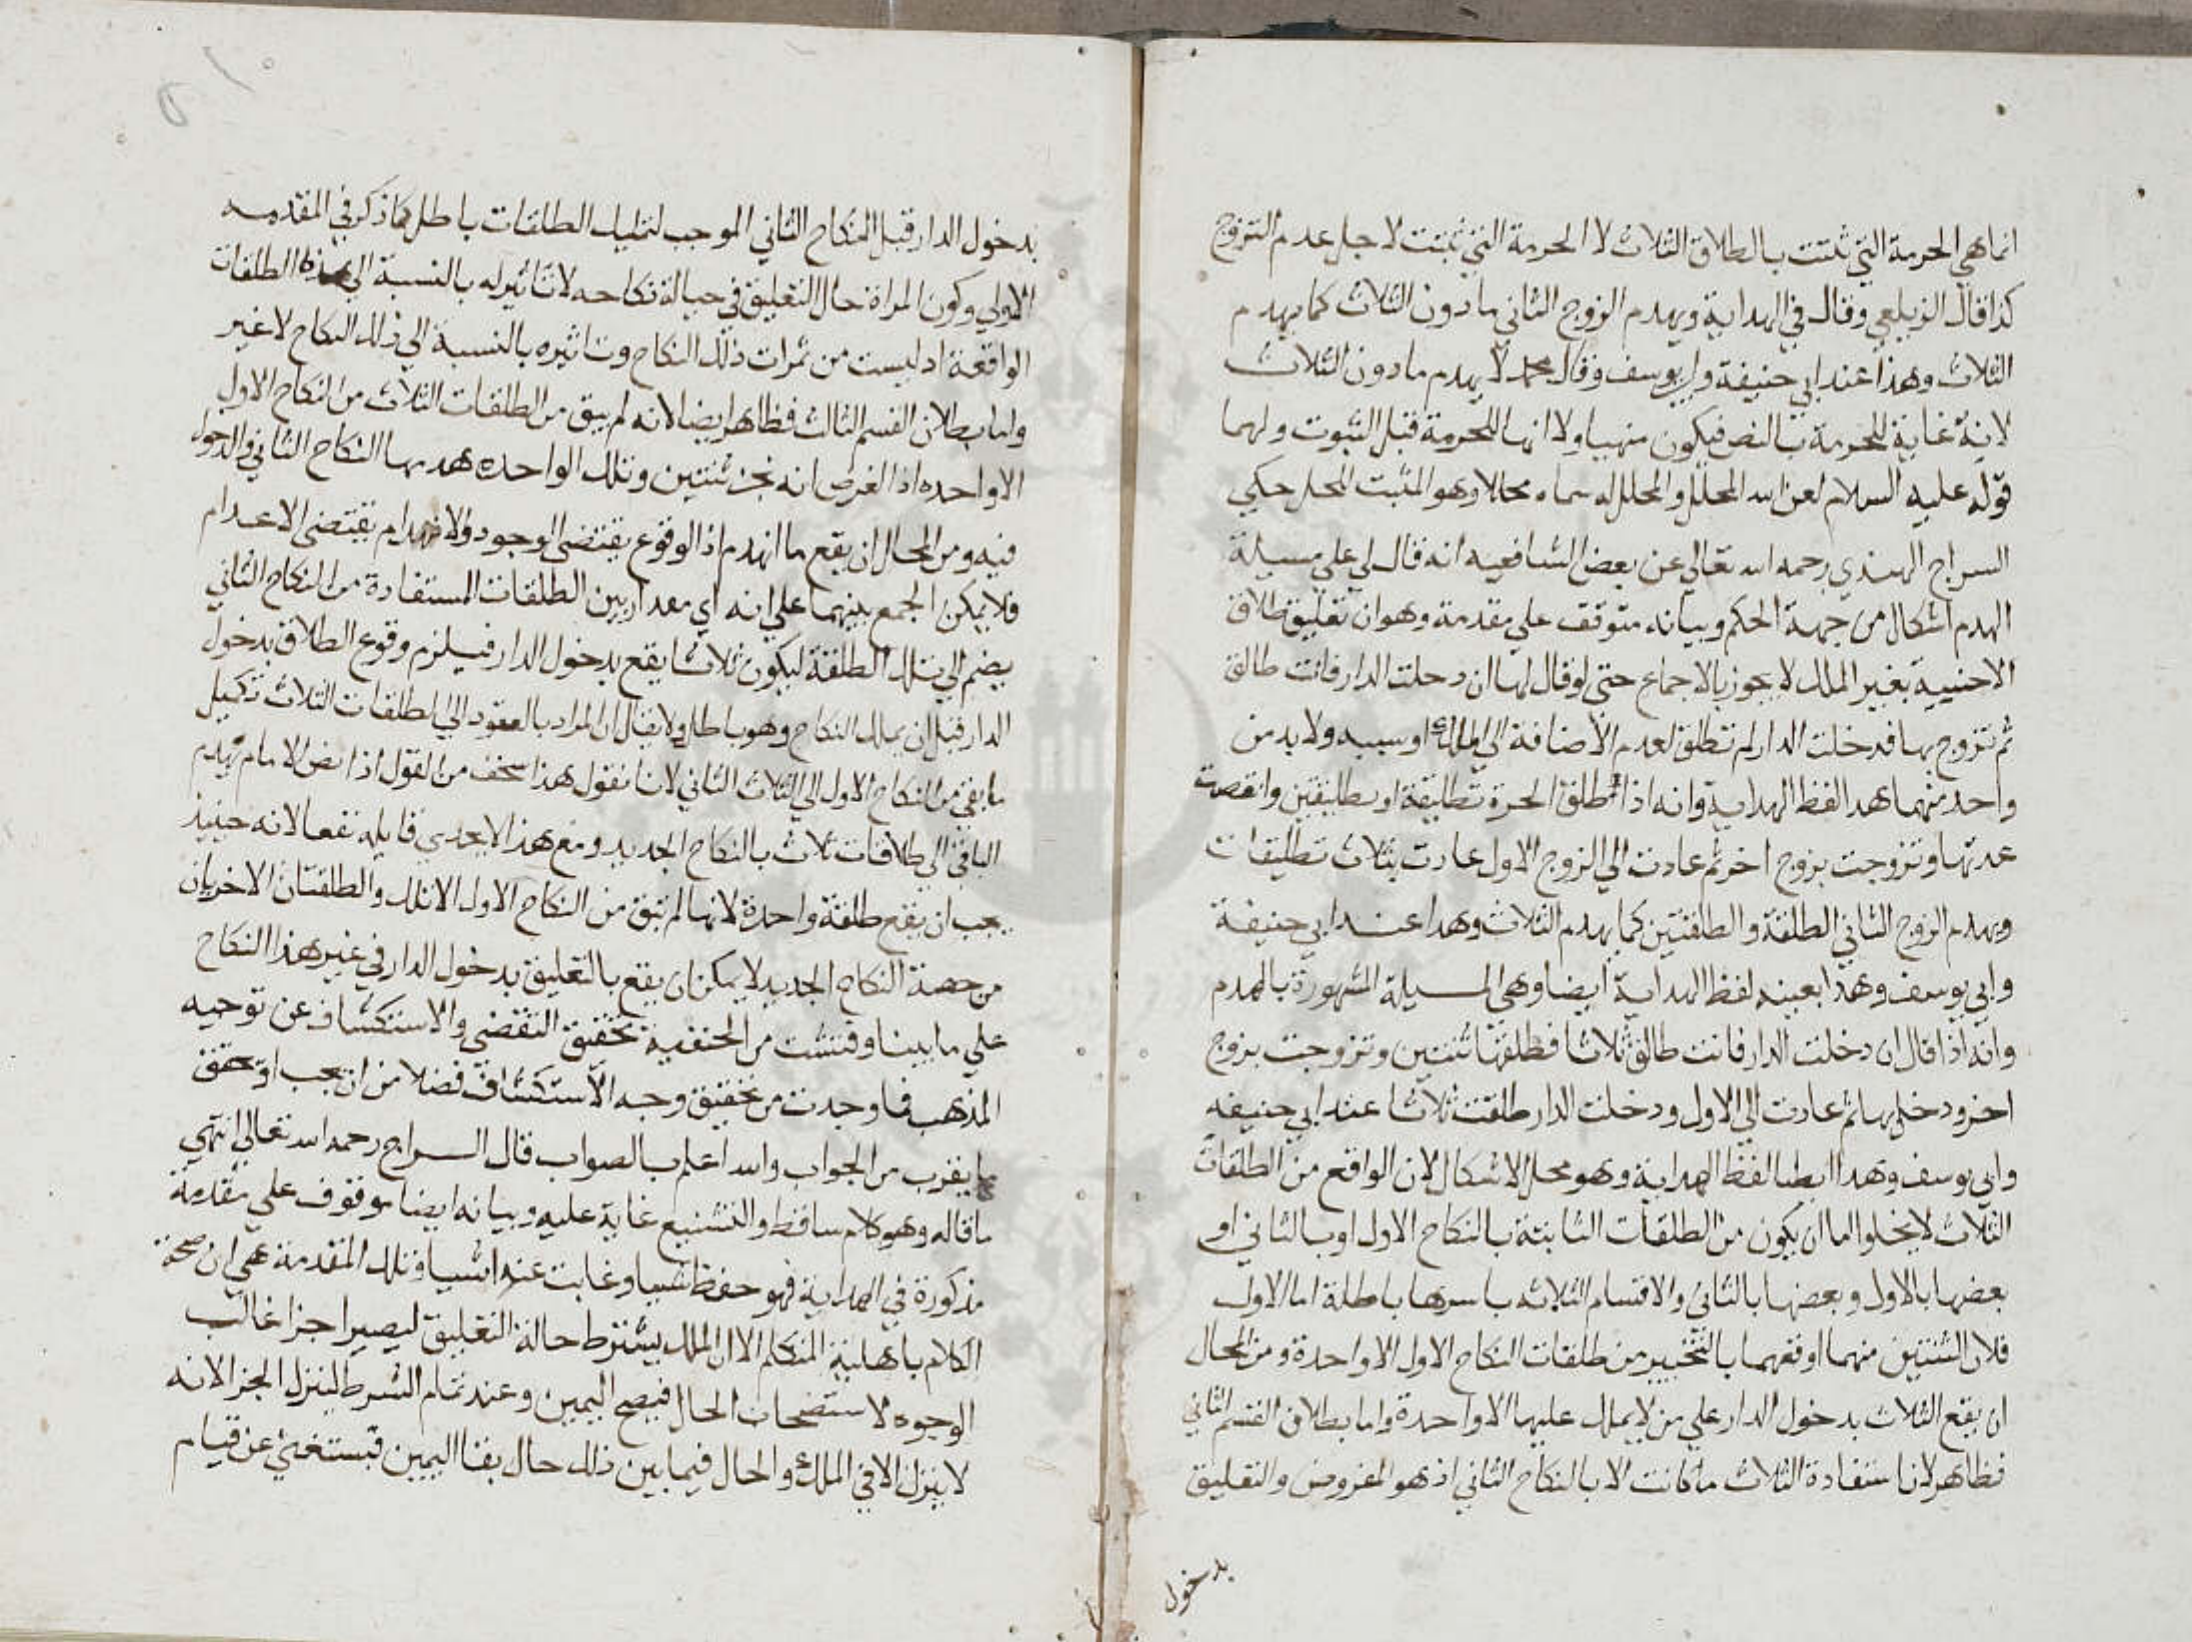 انما هي الحرمة التي ثبتت بالطلاق الثلاث لا الحرمة التي ثبتت لاجل عدم التزوج
كذا قال الزيلعي وقال في الهداية ويهدم الزوج الثاني ما دون الثلاث كما يهدم
الثلاث وهذا عند ابي حنيفة وابي يوسف وقال محمد لا يهدم ما دون الثلاث
لانه غاية للحرمة بالنص فيكون منهيا ولا انها للحرمة قبل الثبوت ولهما
قوله عليه السلام لعن الله المحلل والمحلل له سماه محللا وهو المثبت للحل حكي
السراج الهندي رحمه الله تعالي عن بعض الشافعيه انه قال لي علي مسيلة
الهدم اشكال من جهة الحكم وبيانه متوقف علي مقدمة وهو ان تعليق طلاق
الاجنبية بغير الملك لا يجوز بالاجماع حتى لو قال لها ان دخلت الدار فانت طالق
ثم تزوج بها فدخلت الدار لم تطلق لعدم الاضافة الي الملك او سببه ولا بد من
واحد منهما هدا لفظ الهداية وانه اذا طلق الحرة تطليقة او تطليقتين وانقضت
عدتها وتزوجت بزوج اخر ثم عادت الي الزوج الاول عادت بثلاث تطليقات
ويهدم الزوج الثاني الطلقة والطلقتين كما يهدم الثلاث وهدا عند ابي حنيفة
وابي يوسف وهذا بعينه لفظ الهداية ايضا وهي المسيلة المشهورة بالهدم
وانه اذا قال ان دخلت الدار فانت طالق ثلاثا فطلقها ثنتين وتزوجت بزوج
اخر ودخل بها ثم عادت الي الاول ودخلت الدار طلقت ثلاثا عند ابي حنيفه
وابي يوسف وهدا ايضا لفظ الهداية وهو محل الاشكال لان الواقع من الطلقات
الثلاث لا يخلوا اما ان يكون من الطلقات الثابتة بالنكاح الاول او بالثاني او
بعضها بالاول وبعضها بالثاني والاقسام الثلاثه باسرها باطلة اما الاول
فلان الثنتين منهما اوقعهما بالتنجيز من طلقات النكاح الاول الا واحدة ومن المحال
ان يقع الثلاث بدخول الدار علي من لا يملك عليها الا واحدة واما بطلان القسم الثاني
فظاهر لان استفادة الثلاث ما كانت الا بالنكاح الثاني اذ هو المفروض والتعليق
بدخول
بدخول الدار قبل النكاح الثاني الموجب لتمليك الطلقات باطل كما ذكر في المقدمه
الاولي وكون المراة حال التعليق في حبالة نكاحه لا تاثير له بالنسبة الي هذه الطلقات
الواقعة اد ليست من ثمرات ذلك النكاح وتاثيره بالنسبة الي ذلك النكاح لا غير
واما بطلان القسم الثالث فظاهر ايضا لانه لم يبق من الطلقات الثلاث من النكاح الاول
الا واحده اذ الغرض انه نجز ثنتين وتلك الواحده هدمها النكاح الثاني والدخول
فيه ومن المحال ان يقع ما انهدم اذ الوقوع يقتضي الوجود والانهدام يقتضي الاعدام
فلا يمكن الجمع بينهما علي انه اي مقدار بين الطلقات المستفادة من النكاح الثاني
يضم الي تلك الطلقة ليكون ثلاثا يقع بدخول الدار فيلزم وقوع الطلاق بدخول
الدار قبل ان يملك النكاح وهو باطل ولا يقال ان المراد بالعود الي الطلقات الثلاث تكميل
ما بقي من النكاح الاول الي الثلاث الثاني لانا نقول هذا سخف من القول اذا نص الامام يهدم
الباقي الي طلاقات ثلاث بالنكاح الجديد ومع هذا لا يجدي قايله نفعا لانه حينيذ
يجب ان يقع طلقة واحدة لانها لم تبق من النكاح الاول الا تلك والطلقتان الاخريان
من جهة النكاح الجديد لا يمكن ان يقع بالتعليق بدخول الدار في غير هذا النكاح
علي ما بينا وفتشت من الحنفية تحقيق التقضي والاستكشاف عن توجيه
المذهب فما وجدت من تحقيق وجه الاستكشاف فضلا من ان يجب او تحقق
ما يقرب من الجواب والله اعلم بالصواب قال السراج رحمه الله تعالي انتهي
ما قاله وهو كلام ساقط والتشنيع غاية عليه وبيانه ايضا موقوف علي مقدمة
مذكورة في الهداية فهو حفظ شيا وغابت عنه اشيا وتلك المقدمة هي ان صحة
الكلام باهلية المتكلم الا ان الملك يشترط حالة التعليق ليصير اجزا غالب
الوجوه لا ستصحاب الحال فيصح اليمين وعند تمام الشرط لينزل الجزا لانه
لا ينزل الا في الملك والحال فيما بين ذلك حال بقا اليمين فيستغني عن قيام